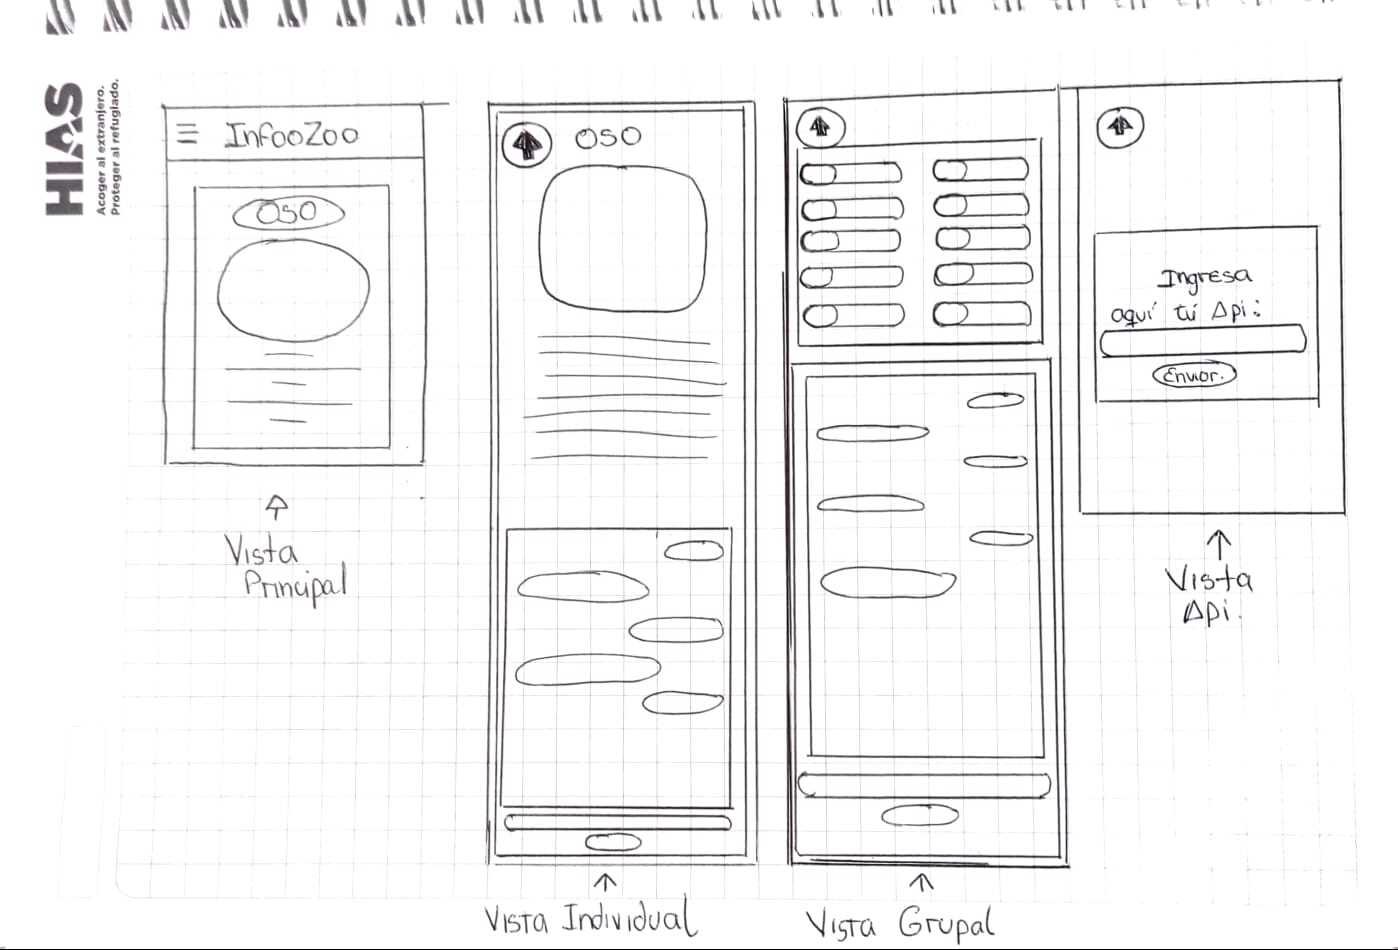 HIAS
Acoger al extranjero.
Proteger al refugiado.
InfooZoo
OSO
Vista
Principal
OSO
Vista Individual
Vista Grupal
Ingresa
aquí tú Api:
Enviar.
Vista
Api.